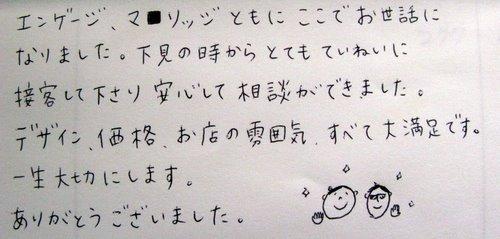 エンゲージ、マ■リッジともにここでお世話に
なりました。下見の時からとてもていねいに
接客して下さり安心して相談ができました。
デザイン、価格、お店の雰囲気、すべて大満足です。
一生大切にします。
ありがとうございました。